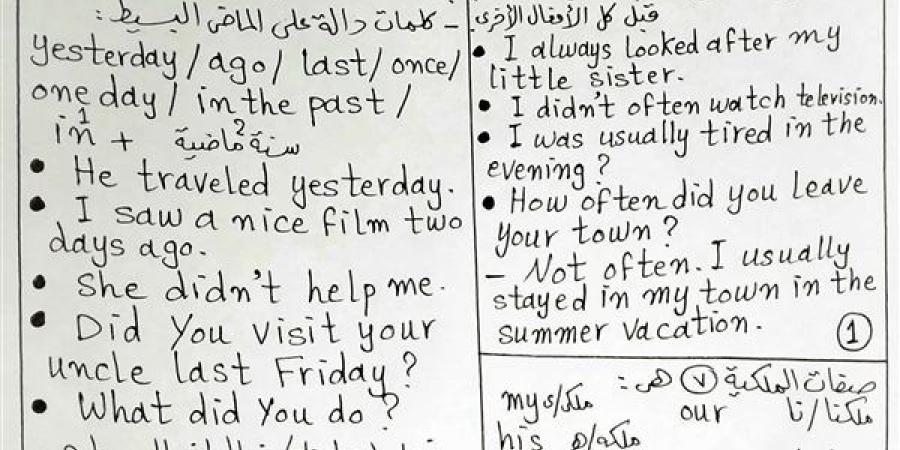 - كلمات دالة على الماضى البسيط:
yesterday / ago / last / once /
one day / in the past /
in + سنة ماضية
1 2
• He traveled yesterday.
• I saw a nice film two
days ago.
• She didn't help me.
• Did you visit your
uncle last Friday?
• What did you do?
قبل كل الأفعال الأخرى
• I always looked after my
little sister.
• I didn't often watch television.
• I was usually tired in the
evening?
• How often did you leave
your town?
- Not often. I usually
stayed in my town in the
summer vacation.
1
صفات الملكية (٧) هى:
my ملكى/ى our ملكنا/نا
his ملكه/ه